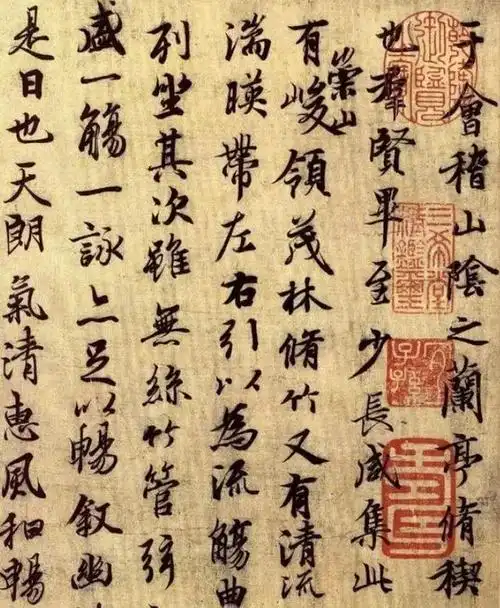 于會稽山陰之蘭亭脩稧
也羣賢畢至少長咸集此
有崇山峻領茂林脩竹又有清流
湍暎帶左右引以為流觴曲
列坐其次雖無絲竹管弦
盛一觴一詠亦足以暢敘幽
是日也天朗氣清惠風和暢